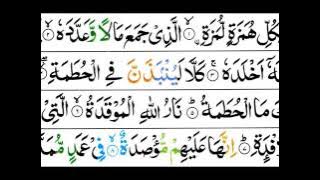 كُلِّ هُمَزَةٍ لُّمَزَةٍ ۙ﴿۱﴾ الَّذِىْ جَمَعَ مَالًا وَّعَدَّدَهٗ ۙ﴿۲﴾
اَخْلَدَهٗ ۚ﴿۳﴾ كَلَّا لَيُنْۢبَذَنَّ فِى الْحُطَمَةِ
مَا الْحُطَمَةُ ؕ﴿۵﴾ نَارُ اللّٰهِ الْمُوْقَدَةُ ۙ﴿۶﴾ الَّتِىْ
اِنَّهَا عَلَيْهِمْ مُّؤْصَدَةٌ ۙ﴿۸﴾ فِىْ عَمَدٍ